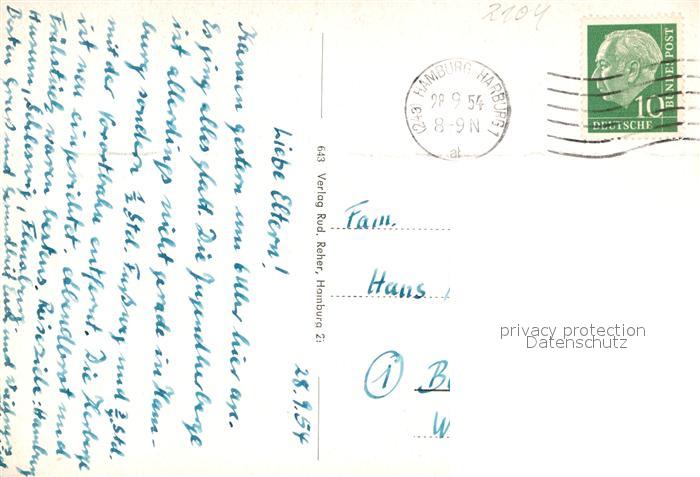 2104
(24a) HAMBURG-HARBURG 1
28.9.54
8-9 N
at
10
DEUTSCHE
BUNDESPOST
28.9.54
Liebe Eltern!
Kamen gestern um 6 Uhr hier an.
Es ging alles glatt. Die Jugendherberge
ist allerdings nicht gerade in Ham-
burg sondern ½ Std. Fußweg und ½ Std.
mit der Vorortbahn entfernt. Die Herberge
ist neu eingerichtet. Abendbrot und
Frühstück waren bestens. Reiseziele: Hamburg
Husum, Schleswig, Flensburg.
Besten Gruß und Gesundheit Euch und
643 Verlag Rud. Reher, Hamburg 2
Fam.
Hans
① B
W
privacy protection
Datenschutz